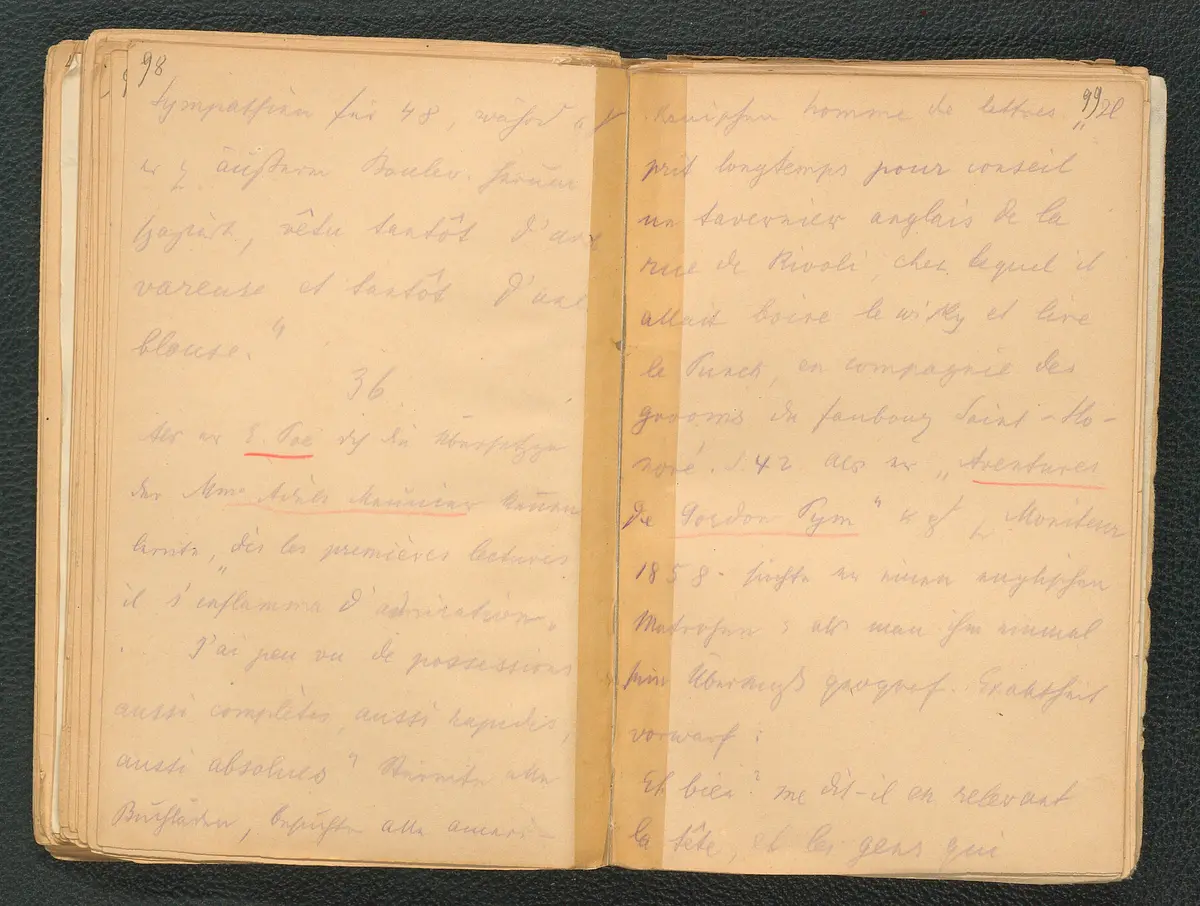 98
Sympathien für 48, währd
er äußern Boulev.
vêtu tantôt d'une
vareuse et tantôt d'une
blouse."
36
Als er E. Poe dch die Übersetzgn
der Mme Adèle Meunier kennen
lernte, "dès les premières lectures
il s'inflamma d'admiration."
J'ai peu vu de possessions
aussi complètes, aussi rapides,
aussi absolues" Stürmte alle
Buchläden, besuchte alle ameri-
99
kanischen homme de lettres. "Il
prit longtemps pour conseil
un tavernier anglais de la
rue de Rivoli, chez lequel il
allait boire le wisky et lire
le Punch, en compagnie des
grooms du faubourg Saint-Ho-
noré. S. 42. Als er "Aventures
de Gordon Pym" Moniteur
1858. suchte er einen englischen
Matrosen; als man ihm einmal
sein Übermaß geograf. Exaktheit
vorwarf:
Eh bien? me dit-il en relevant
la tête, et les gens qui